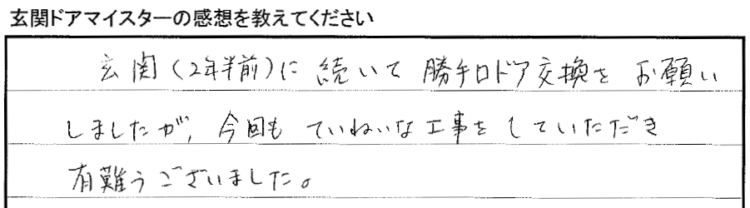 玄関ドアマイスターの感想を教えてください
玄関(2年半前)に続いて勝手口ドア交換をお願い
しましたが、今回もていねいな工事をしていただき
有難うございました。